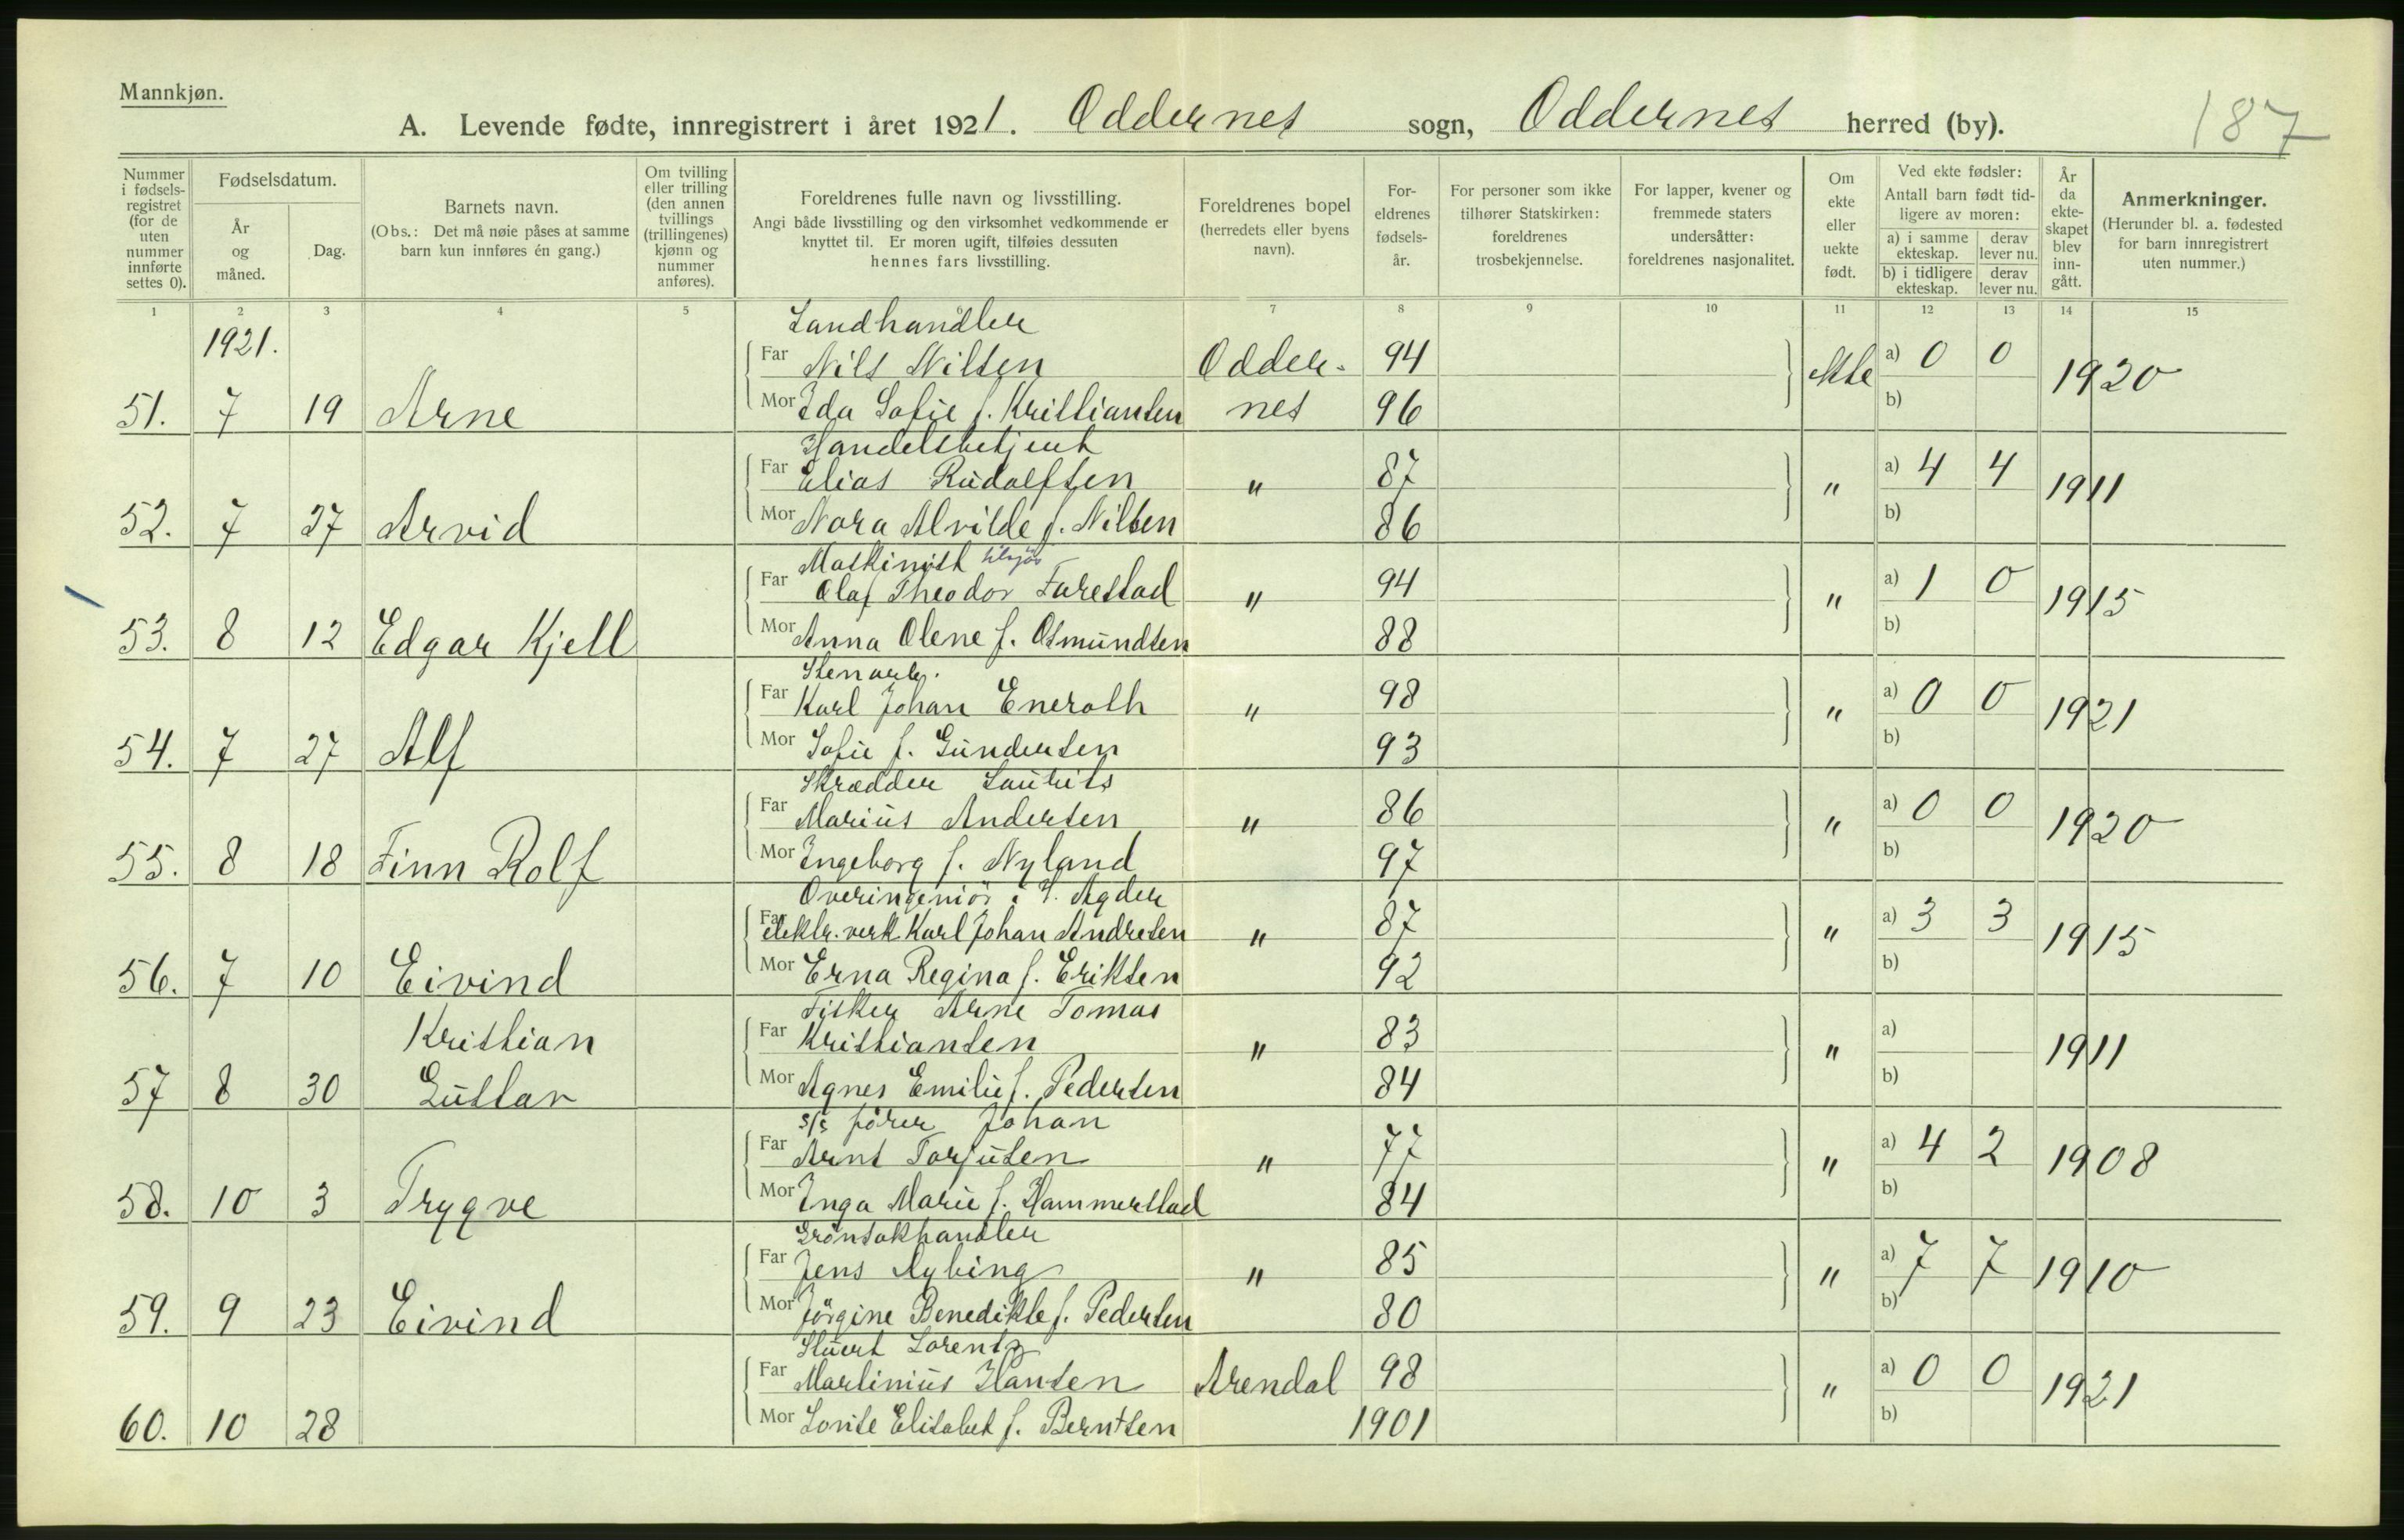 Mannkjøn.
A. Levende fødte, innregistrert i året 1921. Oddernes sogn, Oddernes herred (by). 187
Nummer i fødsels-registret (for de uten nummer innførte settes 0).
Fødselsdatum.
År og måned.
Dag.
Barnets navn.
(Obs.: Det må nøie påses at samme barn kun innføres én gang.)
Om tvilling eller trilling (den annen tvillings (trillingenes) kjønn og nummer anføres).
Foreldrenes fulle navn og livsstilling.
Angi både livsstilling og den virksomhet vedkommende er knyttet til. Er moren ugift, tilføies dessuten hennes fars livsstilling.
Foreldrenes bopel (herredets eller byens navn).
For-eldrenes fødsels-år.
For personer som ikke tilhører Statskirken: foreldrenes trosbekjennelse.
For lapper, kvener og fremmede staters undersåtter: foreldrenes nasjonalitet.
Om ekte eller uekte født.
Ved ekte fødsler: Antall barn født tid-ligere av moren:
a) i samme ekteskap. derav lever nu.
b) i tidligere ekteskap. derav lever nu.
År da ekte-skapet blev inn-gått.
Anmerkninger.
(Herunder bl. a. fødested for barn innregistrert uten nummer.)
1 2 3 4 5 7 8 9 10 11 12 13 14 15
1921.
Landhandler
Far Nils Nilsen Odder- 94 ekte a) 0 0 1920
51. 7 19 Arne Mor Ida Sofie f. Kristiansen nes 96 b)
Handelsbetjent
Far Elias Rudolfsen " 87 " a) 4 4 1911
52. 7 27 Arvid Mor Nora Alvilde f. Nilsen 86 b)
Maskinist tilsjøs
Far Olaf Theodor Farestad " 94 " a) 1 0 1915
53. 8 12 Edgar Kjell Mor Anna Olene f. Osmundsen 88 b)
Stenarb.
Far Karl Johan Eneroth " 98 " a) 0 0 1921
54. 7 27 Alf Mor Sofie f. Gundersen 93 b)
Skrædder Laurits
Far Marius Andersen " 86 " a) 0 0 1920
55. 8 18 Finn Rolf Mor Ingeborg f. Nyland 97 b)
Overingeniør i V. Agder
Far elektr. verk Karl Johan Andresen " 87 " a) 3 3 1915
56. 7 10 Eivind Mor Erna Regina f. Eriksen 92 b)
Fisker Arne Tomas
Kristian Far Kristiansen " 83 " a) 1911
57 8 30 Gustav Mor Agnes Emilie f. Pedersen 84 b)
s/s fører Johan
Far Arnt Torjusen " 77 " a) 4 2 1908
58. 10 3 Trygve Mor Inga Marie f. Hammerstad 84 b)
Grønsakhandler
Far Jens Nybing " 85 " a) 7 7 1910
59. 9 23 Eivind Mor Jörgine Benedikte f. Pedersen 80 b)
Stuert Lorentz
Far Martinius Hansen Arendal 98 " a) 0 0 1921
60. 10 28 Mor Elisabet f. Berntsen 1901 b)